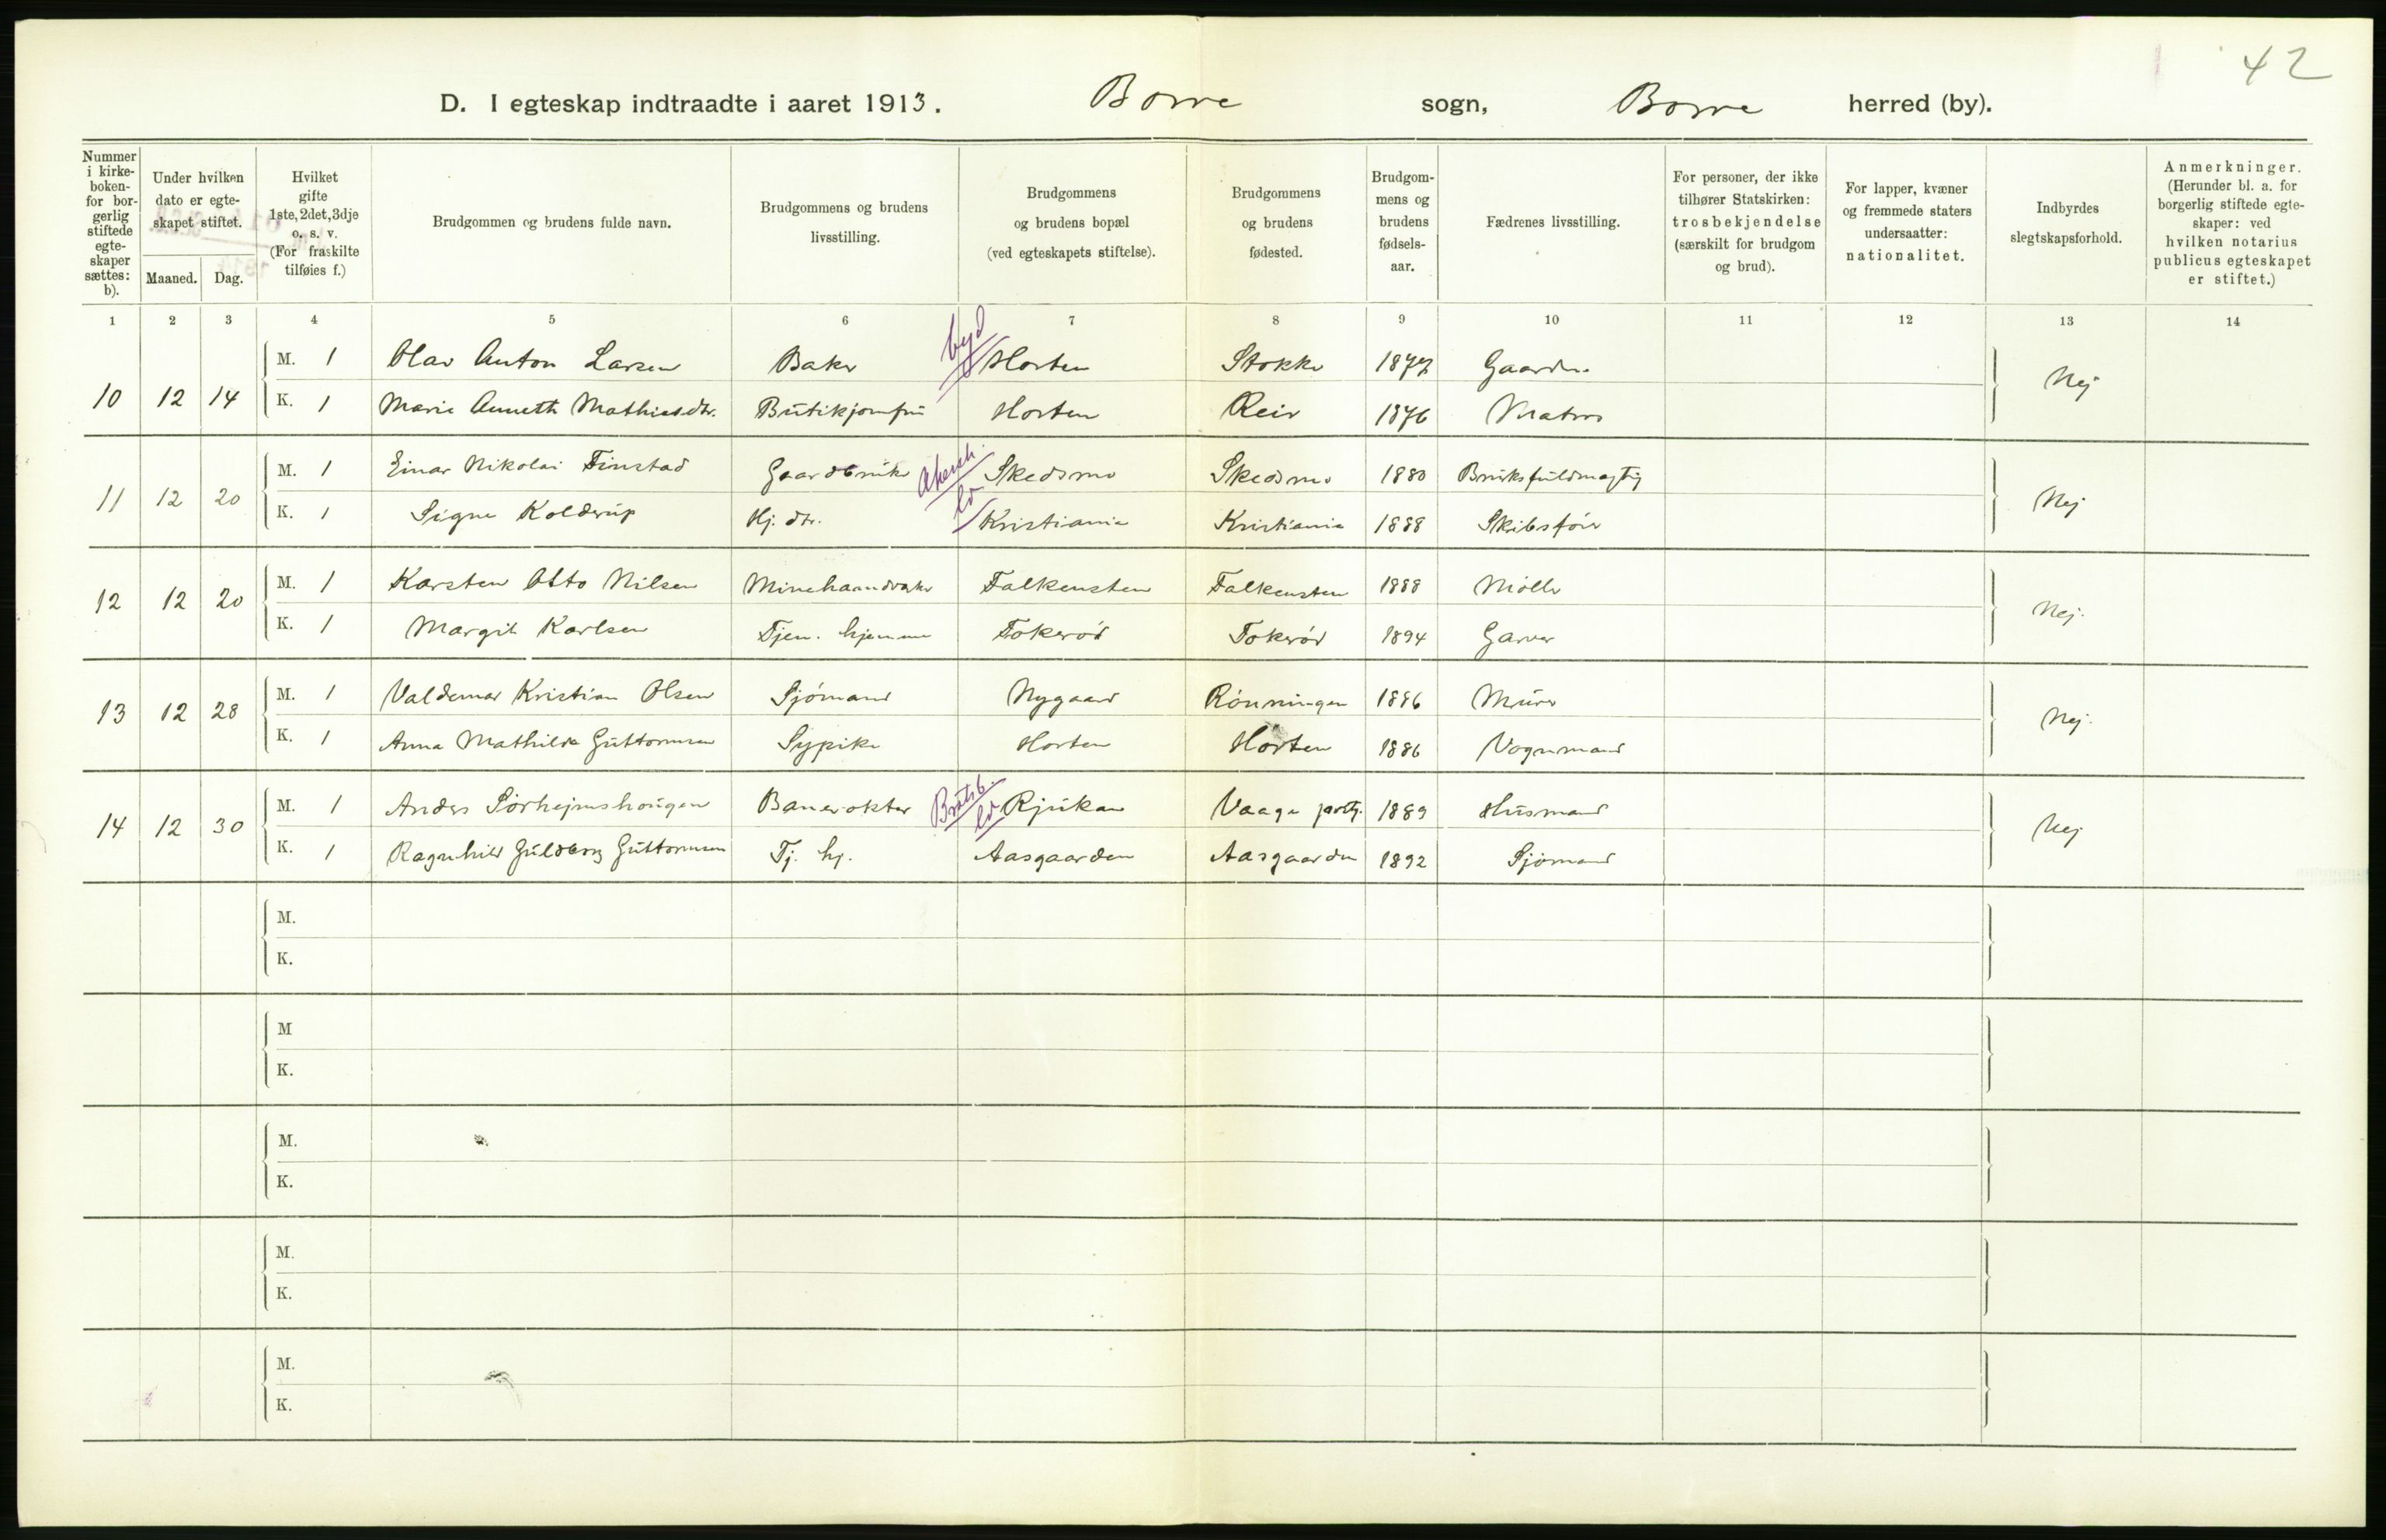 42
D. I egteskap indtraadte i aaret 1913. Borre sogn, Borre herred (by).
Nummer i kirkeboken- for borgerlig stiftede egteskaper sættes: b).
Under hvilken dato er egteskapet stiftet.
Maaned. Dag.
Hvilket gifte 1ste, 2det, 3dje o. s. v. (For fraskilte tilføies f.)
Brudgommen og brudens fulde navn.
Brudgommens og brudens livsstilling.
Brudgommens og brudens bopæl (ved egteskapets stiftelse).
Brudgommens og brudens fødested.
Brudgommens og brudens fødselsaar.
Fædrenes livsstilling.
For personer, der ikke tilhører Statskirken: trosbekjendelse (særskilt for brudgom og brud).
For lapper, kvæner og fremmede staters undersaatter: nationalitet.
Indbyrdes slegtskapsforhold.
Anmerkninger. (Herunder bl. a. for borgerlig stiftede egteskaper: ved hvilken notarius publicus egteskapet er stiftet.)
1 2 3 4 5 6 7 8 9 10 11 12 13 14
byd
10 12 14 M. 1 Olav Anton Larsen Baker Horten Stokke 1877 Gaardbr. Nej
K. 1 Marie Annette Mathiesdtr. Butikjomfru Horten Reir 1876 Matros
Akersh. ld
11 12 20 M. 1 Einar Nikolai Finstad Gaardbruker Skedsmo Skedsmo 1880 Bruksfuldmægtig Nej
K. 1 Signe Kolderup Hj. dtr. Kristiania Kristiania 1888 Skibsfører
12 12 20 M. 1 Karsten Otto Nilsen Minehaandverker Falkensten Falkensten 1888 Møller Nej.
K. 1 Margit Karlsen Tjen. hjemme Tokerød Tokerød 1894 Garver
13 12 28 M. 1 Valdemar Kristian Olsen Sjømand Nygaard Rønningen 1886 Murer Nej.
K. 1 Anna Mathilde Guttormsen Sypike Horten Horten 1886 Vognmand
Bratsb. ld
14 12 30 M. 1 Anders Sørhejmshougen Banevokter Rjukan Vaage prstg. 1889 Husmand Nej
K. 1 Ragnhild Guldborg Guttormsen Tj. hj. Aasgaarden Aasgaarden 1892 Sjømand
M.
K.
M
K.
M.
K.
M.
K.
M.
K.